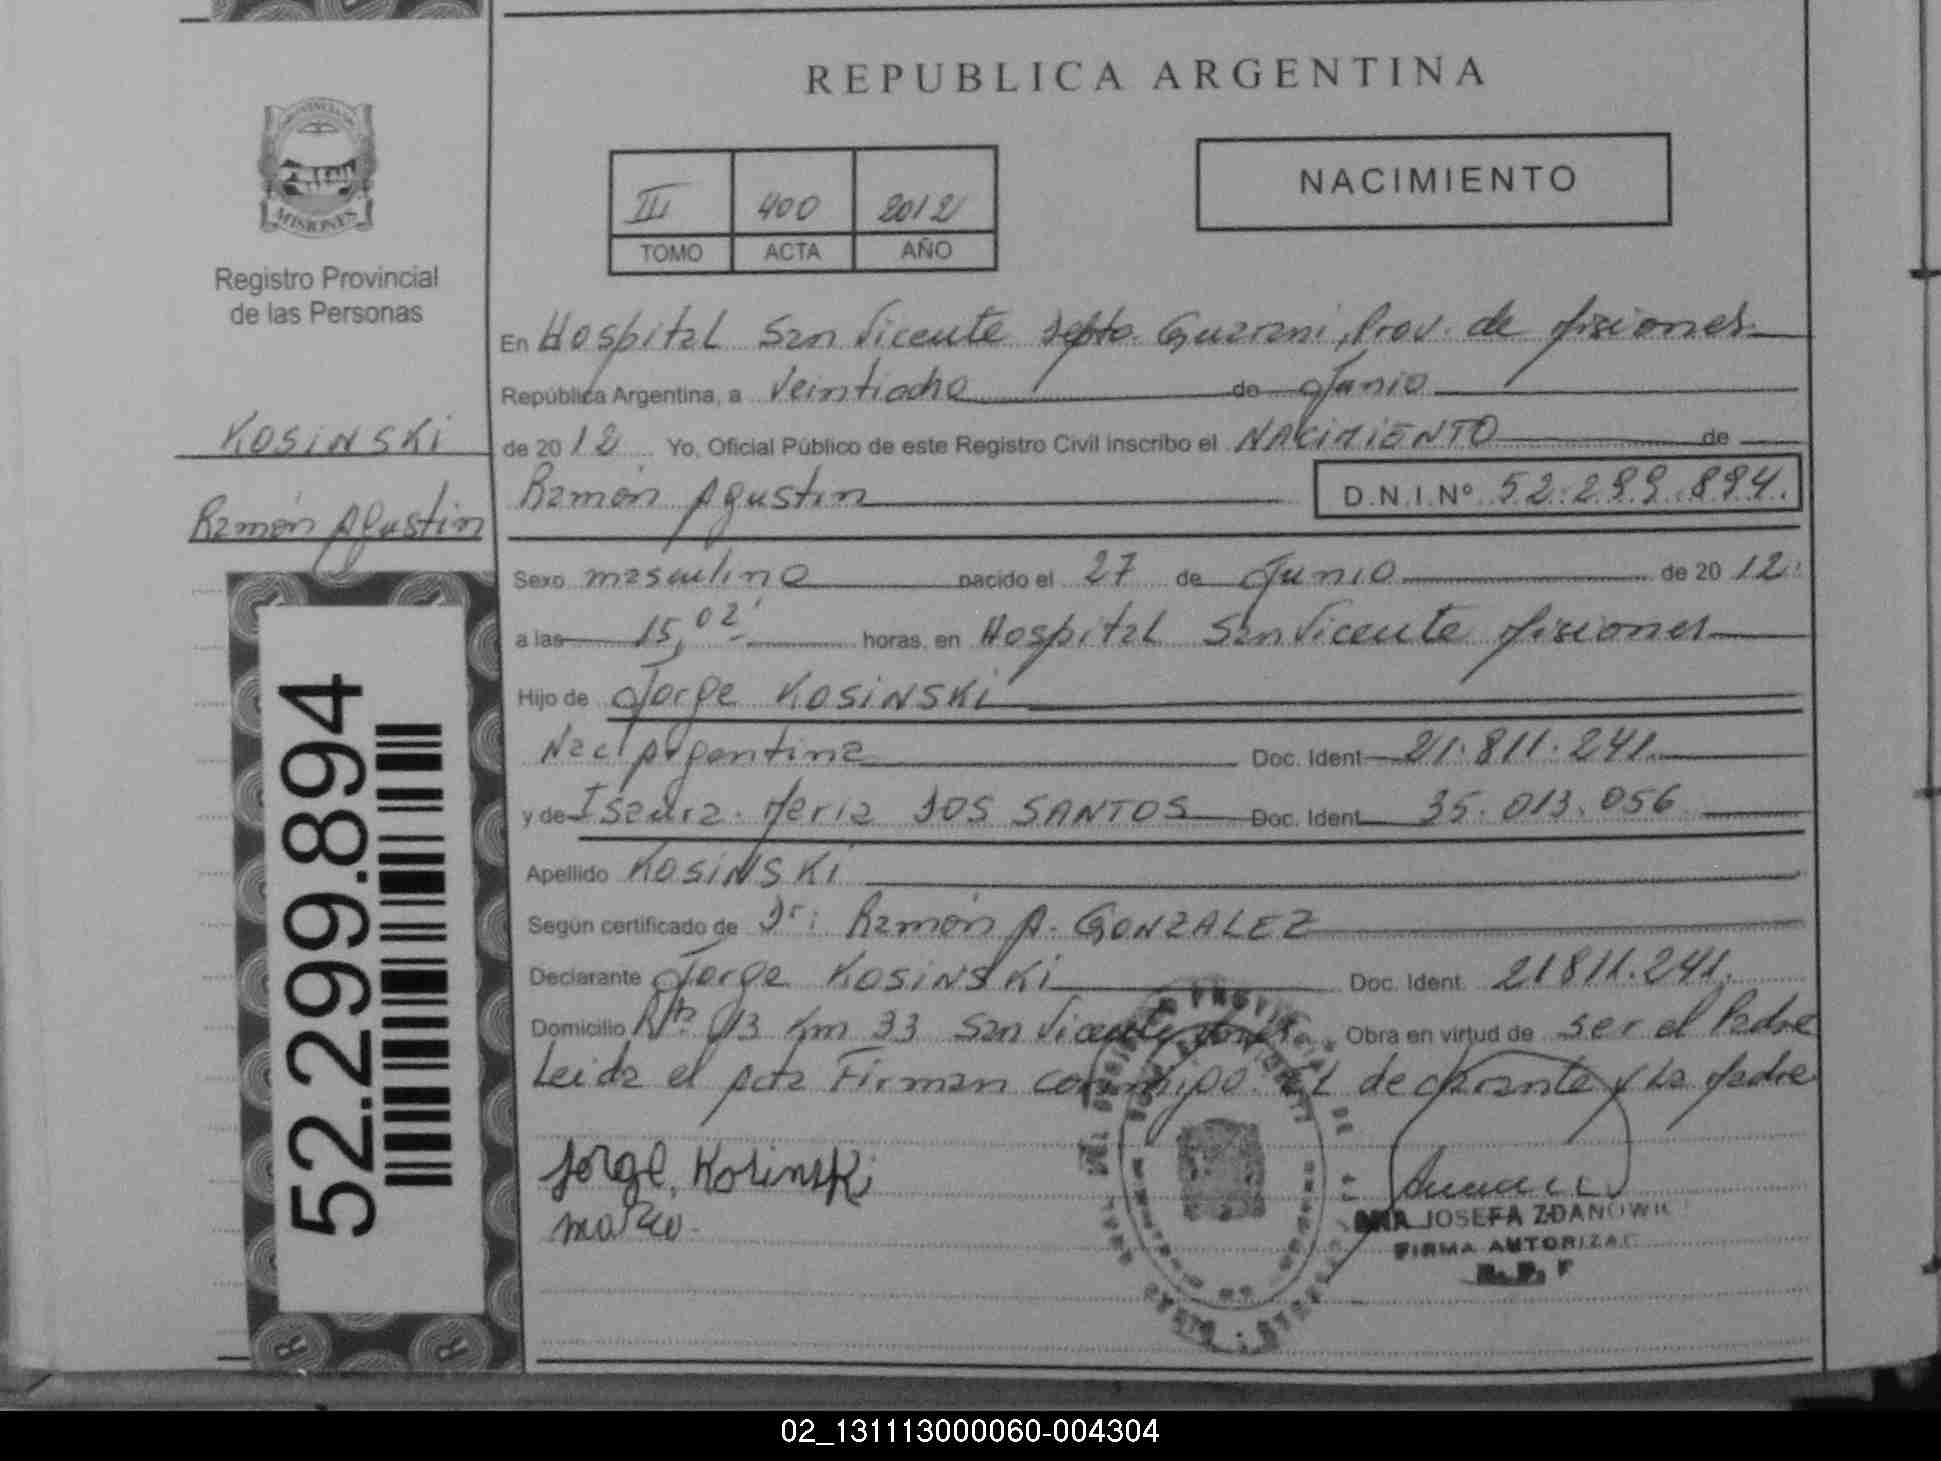 REPUBLICA ARGENTINA
MISIONES
Registro Provincial
de las Personas
NACIMIENTO
III 400 2012
TOMO ACTA AÑO
En Hospital San Vicente Depto. Guarani, Prov. de Misiones
República Argentina, a Veintiocho de Junio
de 2012 Yo, Oficial Público de este Registro Civil inscribo el NACIMIENTO de
Ramón Agustin D.N.I.Nº 52.299.894.
KOSINSKI
Ramón Agustin
52.299.894
Sexo masculino nacido el 27 de Junio de 2012
a las 15,02' horas, en Hospital San Vicente Misiones
Hijo de Jorge KOSINSKI
Nac Argentina Doc. Ident 21.811.241.
y de Isaura Maria DOS SANTOS Doc. Ident 35.013.056
Apellido KOSINSKI
Según certificado de Dr: Ramón A. GONZALEZ
Declarante Jorge KOSINSKI Doc. Ident. 21811.241.
Domicilio Rta 013 Km 33 San Vicente Obra en virtud de ser el Padre
Leida el Acta Firman conmigo El declarante y La Madre
Jorge, Kosinski
ANA JOSEFA ZDANOWIC
FIRMA AUTORIZAD
R. P. P
R R
02_131113000060-004304